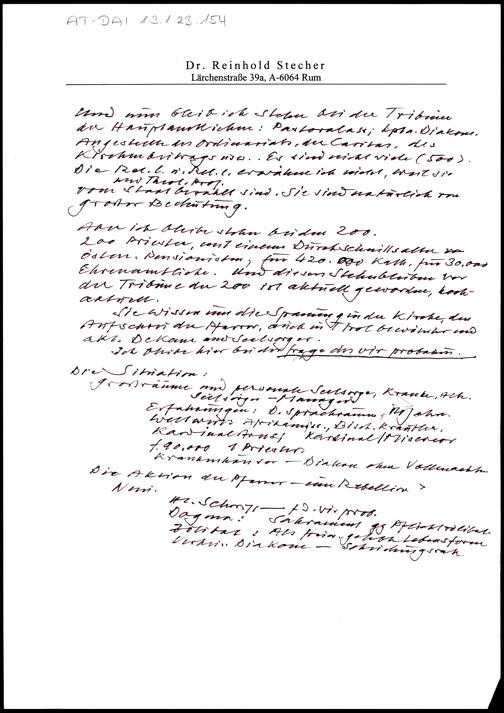 AT-DAI 13.1.23.154
Dr. Reinhold Stecher
Lärchenstraße 39a, A-6064 Rum
Und nun bleib ich stehn bei der Tribüne
der Hauptamtlichen: Pastoralass, hpta. Diakone,
Angestellte des Ordinariats, der Caritas, des
Kirchenbeitrags usw.. Es sind nicht viele (500).
Die Rel. L. u. Rel. L. erwähne ich nicht, weil sie
und Theol. Prof.
vom Staat bezahlt sind. Sie sind natürlich von
großer Bedeutung.
Aber ich bleibe stehn bei den 200.
200 Priester, mit einem Durchschnittsalter von
österr. Pensionisten, für 420.000 Kath, für 30.000
Ehrenamtliche. Und dieses Stehnbleiben vor
der Tribüne der 200 ist aktuell geworden, hoch-
aktuell.
Sie wissen um die Spannung in der Kirche, den
Aufschrei der Pfarrer, auch in Tirol bewährter und
akt. Dekane und Seelsorger.
Ich bleibe hier bei der Frage des vir probatus.
Die Situation:
Großräume und personale Seelsorge, Kranke, Alte
Seelsorger - Manager
Erfahrungen: D. Sprachraum,
Weltweit: Bisch. Kräutler,
Kardinal Arns, Kardinal
f. 90.000 1 Priester
Krankenhäuser — Diakon ohne Vollmachten
Die Aktion der Pfarrer — eine Rebellion?
Nein.
— f. d. vir prob.
Dogma: Sakrament gg Pflichtzölibat
Zölibat: Als frei gelebte Lebensform
Verh. Diakone —